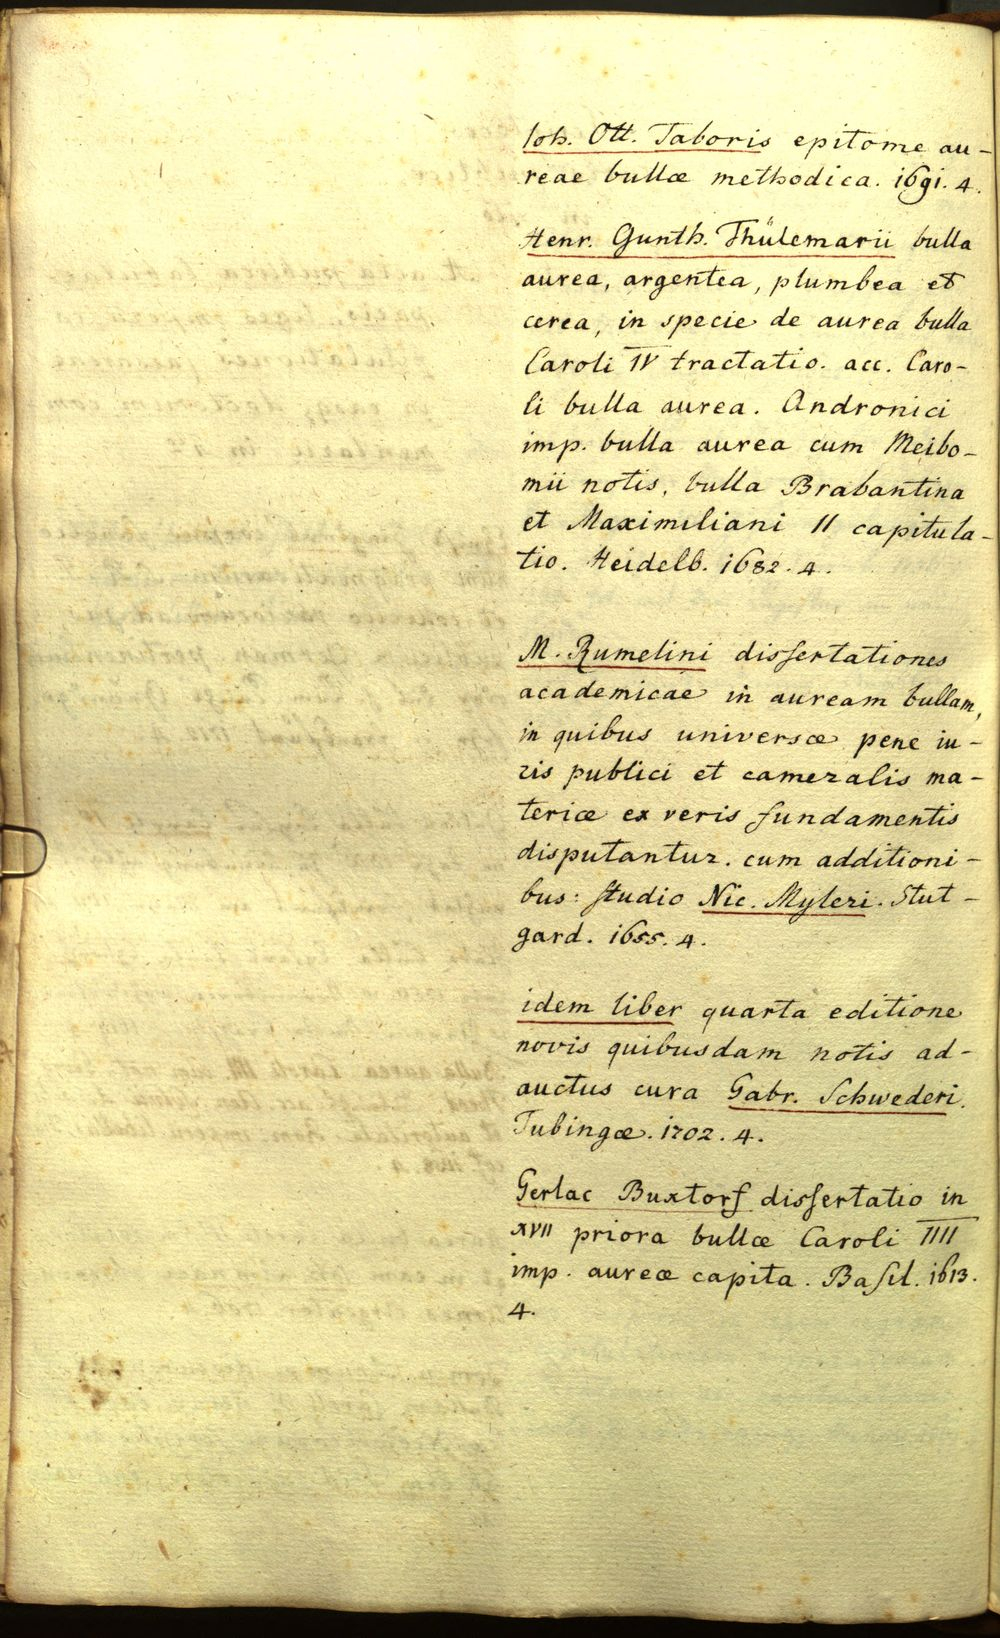 Ioh. Ott. Taboris epitome au-
reae bullæ methodica. 1691. 4.
Henr. Gunth. Thülemarii bulla
aurea, argentea, plumbea et
cerea, in specie de aurea bulla
Caroli IV tractatio. acc. Caro-
li bulla aurea. Andronici
imp. bulla aurea cum Meibo-
mii notis, bulla Brabantina
et Maximiliani II capitula-
tio. Heidelb. 1682. 4.
M. Rumelini disſertationes
academicae in auream bullam,
in quibus universæ pene iu-
ris publici et cameralis ma-
teriæ ex veris fundamentis
disputantur. cum additioni-
bus: ſtudio Nic. Myleri. Stut-
gard. 1655. 4.
idem liber quarta editione
novis quibusdam notis ad-
auctus cura Gabr. Schwederi.
Tubingæ. 1702. 4.
Gerlac Buxtorf disſertatio in
XVII priora bullæ Caroli IIII
imp. aureæ capita. Baſil. 1613.
4.